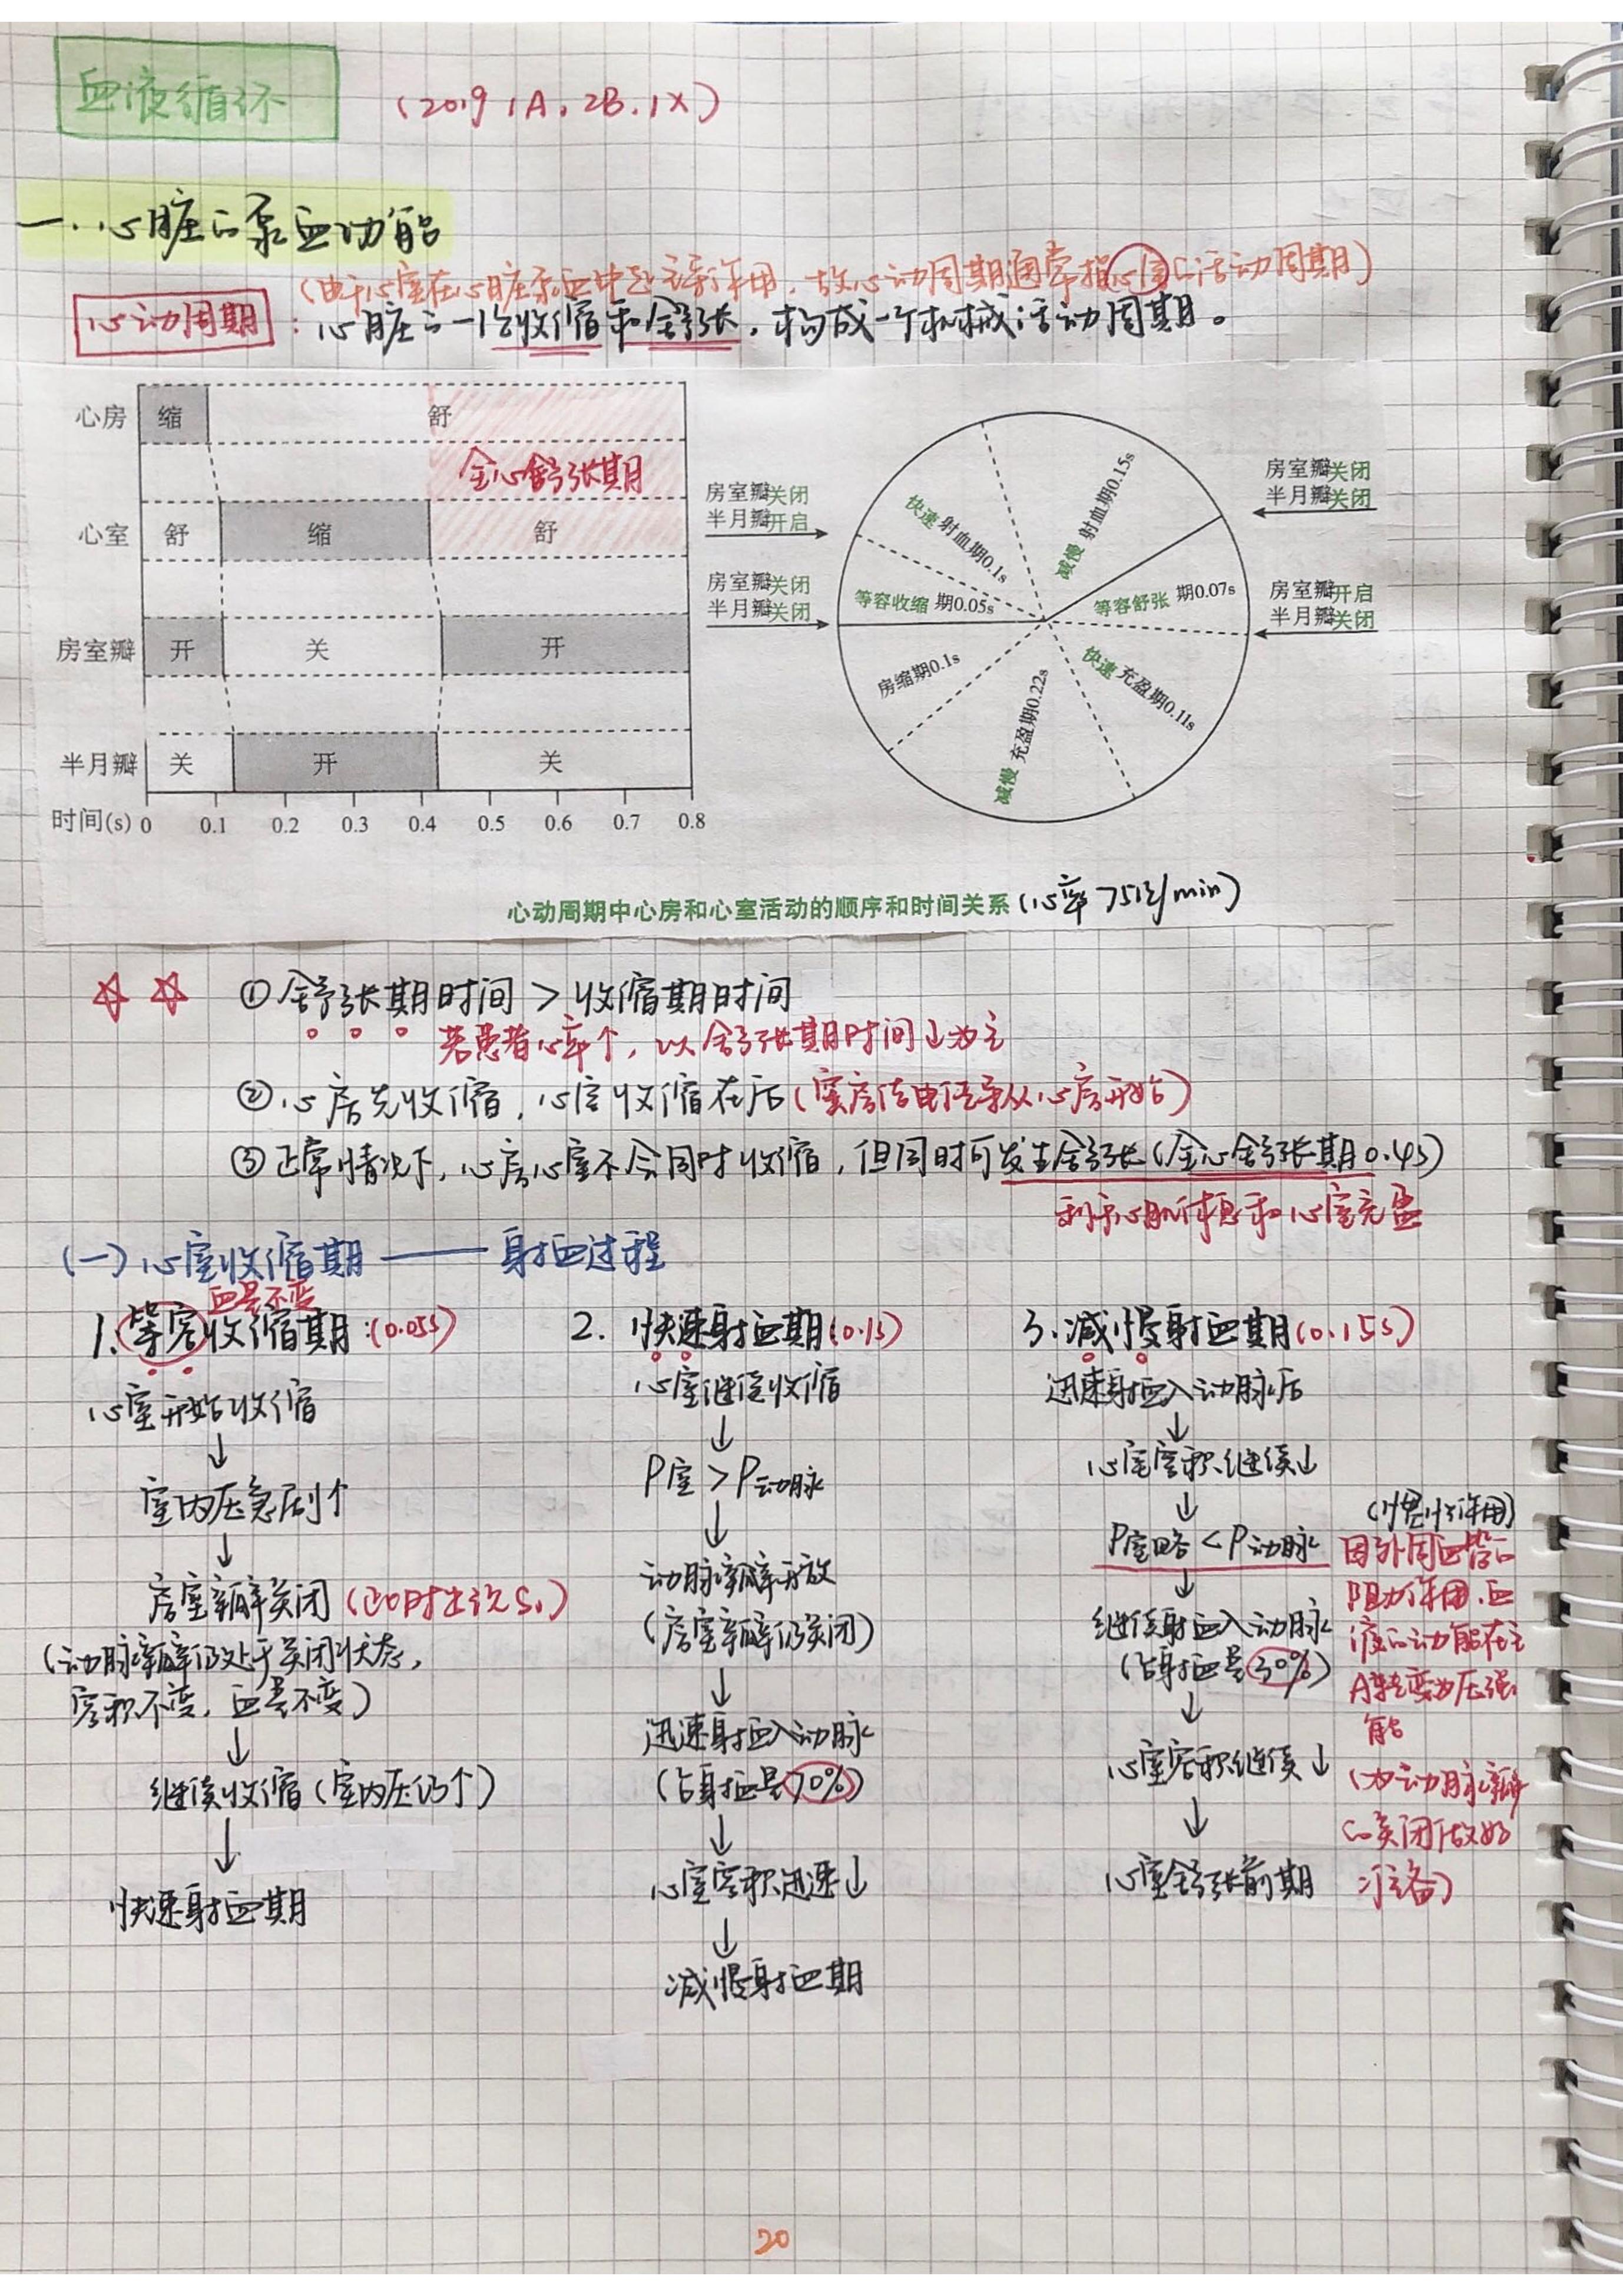 血液循环 (2019 1A. 2B. 1X)
一. 心脏的泵血功能
(由于心室在心脏泵血中起主导作用, 故心动周期通常指心室的活动周期)
心动周期 : 心脏的一次收缩和舒张, 构成一个机械活动周期。
心房 缩 舒
全心舒张期
心室 舒 缩 舒
房室瓣 开 关 开
半月瓣 关 开 关
时间(s) 0 0.1 0.2 0.3 0.4 0.5 0.6 0.7 0.8
房室瓣关闭
半月瓣开启
房室瓣关闭
半月瓣关闭
快速射血期0.1s
减慢射血期0.15s
等容收缩期0.05s
等容舒张期0.07s
房缩期0.1s
减慢充盈期0.22s
快速充盈期0.11s
房室瓣关闭
半月瓣关闭
房室瓣开启
半月瓣关闭
心动周期中心房和心室活动的顺序和时间关系 (心率75次/min)
☆ ☆ ① 舒张期时间 > 收缩期时间
若患者心率↑, 以舒张期时间↓为主
② 心房先收缩, 心室收缩在后 (窦房结电信号从心房开始)
③ 正常情况下, 心房心室不会同时收缩, 但同时可发生舒张 (全心舒张期0.4s)
利于心肌休息和心室充盈
(一) 心室收缩期 —— 射血过程
血量不变
1. 等容收缩期: (0.05s)
心室开始收缩
↓
室内压急剧↑
↓
房室瓣关闭 (此时出现S₁)
(动脉瓣仍处于关闭状态,
容积不变, 血量不变)
↓
继续收缩 (室内压仍↑)
↓
快速射血期
2. 快速射血期: (0.1s)
心室继续收缩
↓
P室 > P动脉
↓
动脉瓣开放
(房室瓣仍关闭)
↓
迅速射血入动脉
(占射血量70%)
↓
心室容积迅速↓
↓
减慢射血期
3. 减慢射血期 (0.15s)
迅速射血入动脉后
↓
心室容积继续↓
↓
P室略 < P动脉
↓
继续射血入动脉
(占射血量30%)
↓
心室容积继续↓
↓
心室舒张前期
(惯性作用)
因外周血管的
阻力作用, 血
液的动能在主
A转变为压强
能
(为动脉瓣
的关闭做好
准备)
20